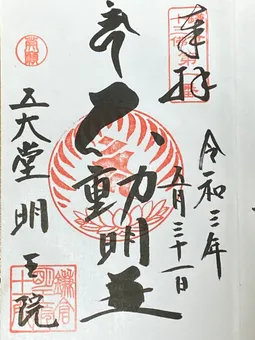 奉拝
令和三年
五月三十一日
不動明王
五大堂 明王院